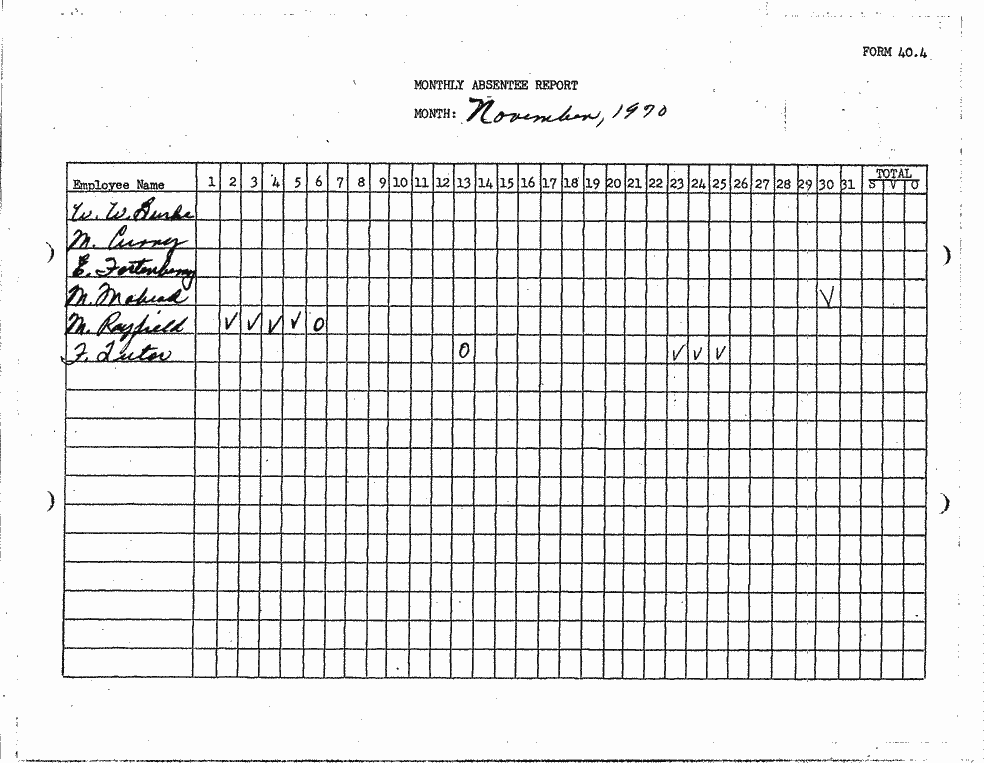 FORM 40.4
MONTHLY ABSENTEE REPORT
MONTH: November, 1970
Employee Name 1 2 3 4 5 6 7 8 9 10 11 12 13 14 15 16 17 18 19 20 21 22 23 24 25 26 27 28 29 30 31 TOTAL
S V O
W. W. Burke
M. Curry
E. Fortenberry
M. Mohead V
M. Rayfield V V V V O
F. Tutor O V V V